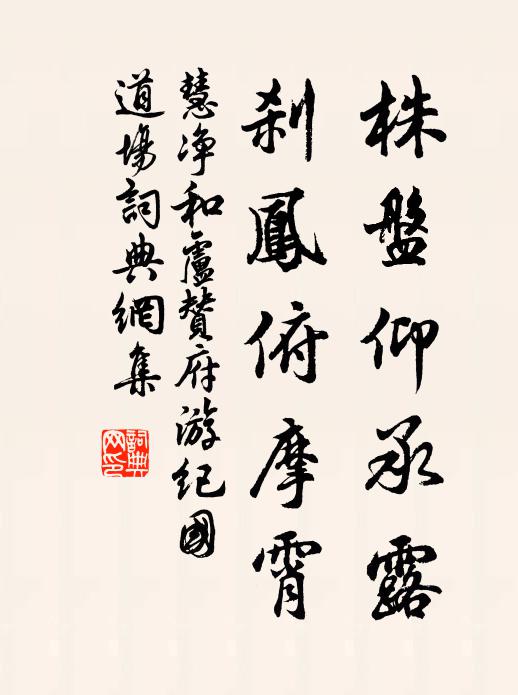 株盤仰承露
刹鳳俯摩霄
慧淨和盧贊府游紀國
道場詞典網集
詞典网印